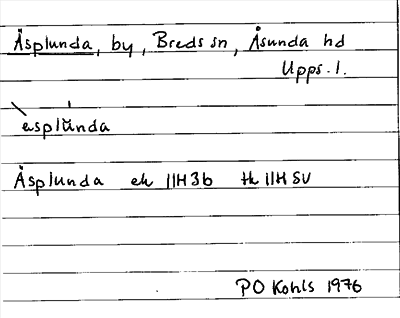 Åsplunda, by, Breds sn, Åsunda hd
Upps. l.
àsplu̇̆nda
Åsplunda ek 11H3b tk 11H SV
PO Kohls 1976